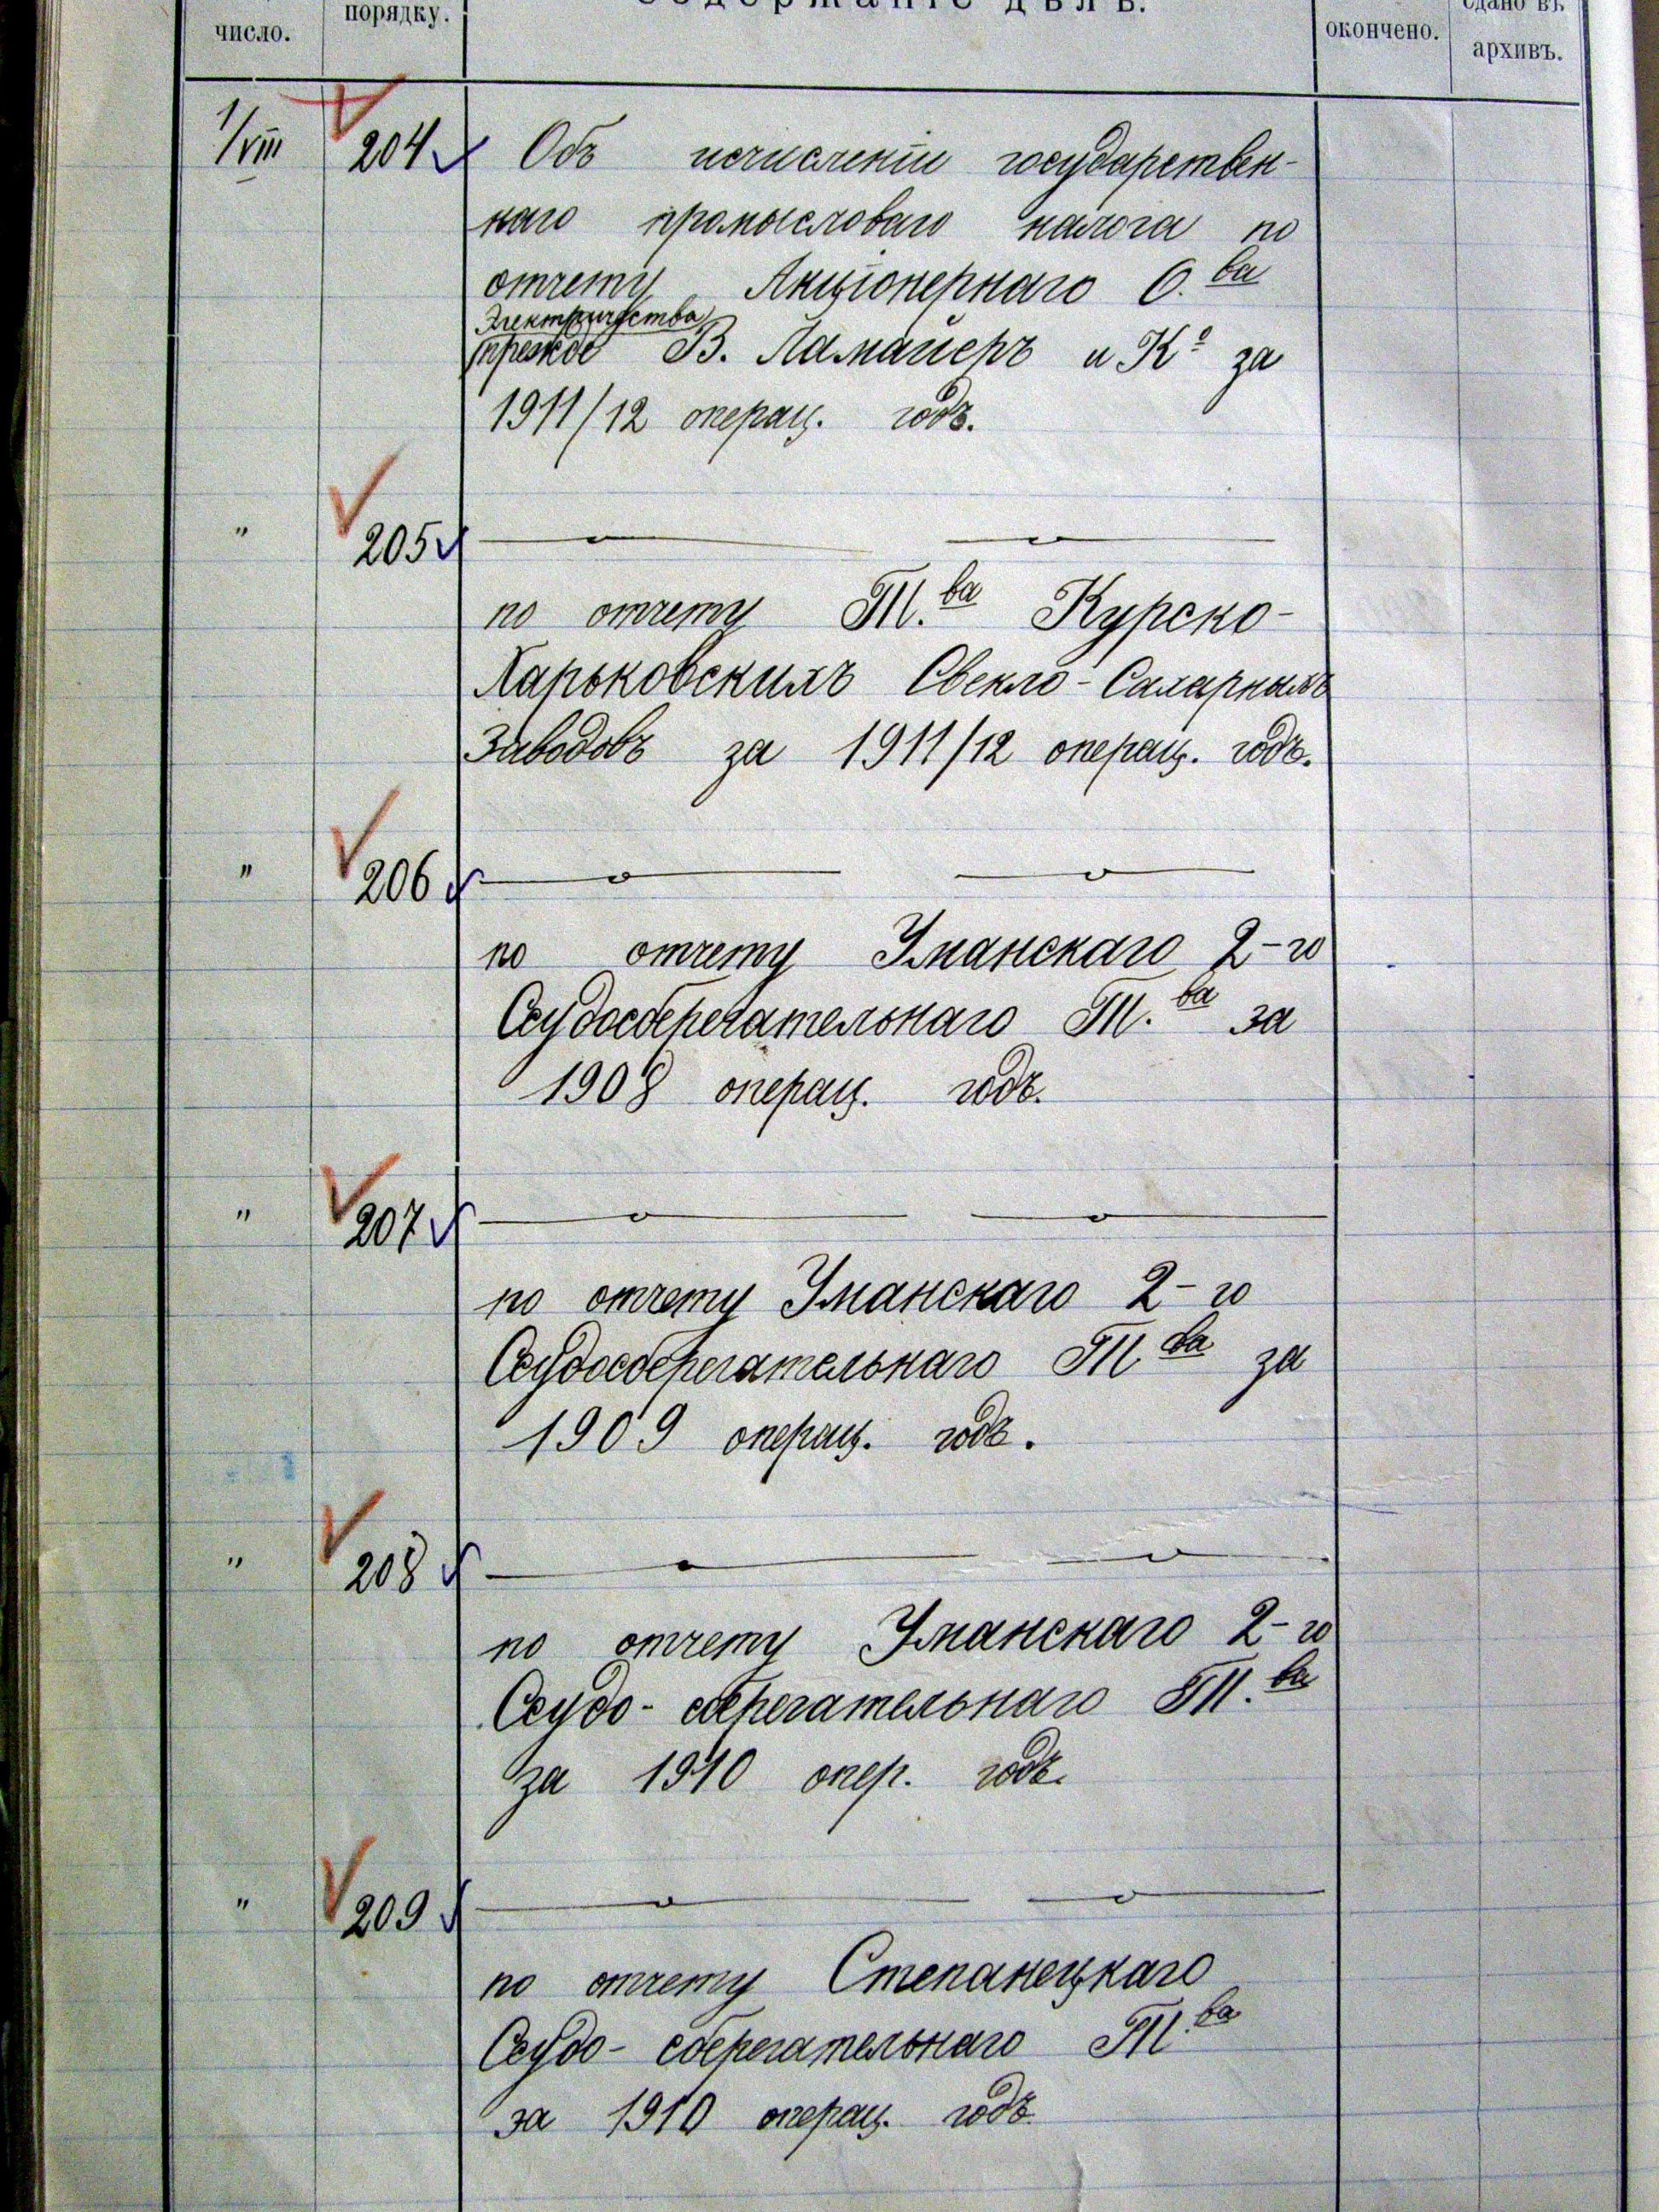 число.
порядку.
Содержаніе дѣлъ.
окончено.
сдано въ
архивъ.
1/VIII 204 Объ исчисленіи государствен-
наго промысловаго налога по
отчету Акціонернаго О.ва
Электричества
прежде В. Ламайеръ и Кº за
1911/12 операц. годъ.
" 205
по отчету Т.ва Курско-
Харьковскихъ Свекло-Сахарныхъ
Заводовъ за 1911/12 операц. годъ.
" 206
по отчету Уманскаго 2-го
Ссудосберегательнаго Т.ва за
1908 операц. годъ.
" 207
по отчету Уманскаго 2-го
Ссудосберегательнаго Т ва за
1909 операц. годъ.
" 208
по отчету Уманскаго 2-го
Ссудо-сберегательнаго Т.ва
за 1910 опер. годъ.
" 209
по отчету Степанецкаго
Ссудо-сберегательнаго Т.ва
за 1910 операц. годъ